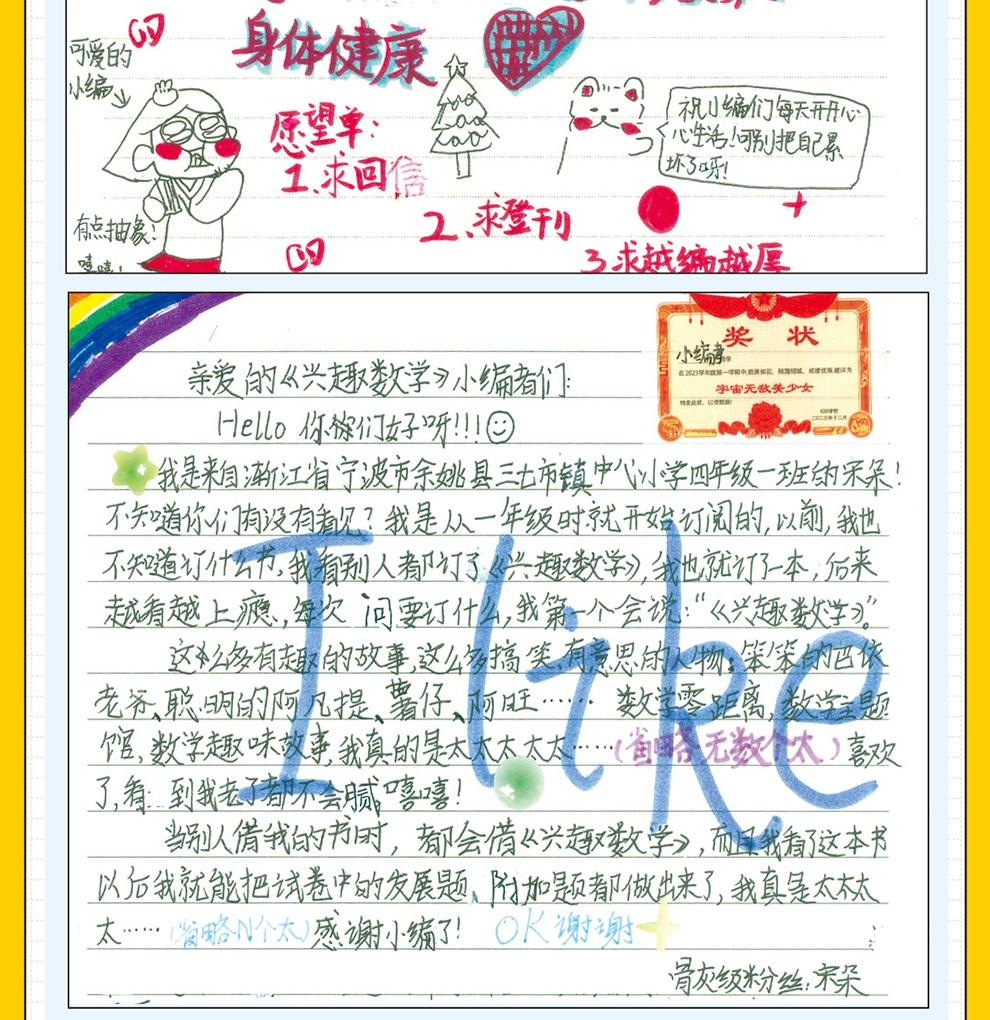 身体健康
可爱的
小编
愿望单:
1.求回信
2.求登刊
3求越编越厚
祝小编们每天开开心
心生活!可别把自己累
坏了呀!
有点抽象!
嘻嘻!
奖 状
小编者
在2023学年度第一学期中,貌美如花,倾国倾城,成绩优秀,被评为
宇宙无敌美少女
特发此奖,以资鼓励!
XXX学校
二〇二三年十二月
亲爱的《兴趣数学》小编者们:
Hello 你你们好呀!!!
我是来自浙江省宁波市余姚县三七市镇中心小学四年级一班的宋朵!
不知道你们有没有看见?我是从一年级时就开始订阅的,以前,我也
不知道订什么书,我看别人都订了《兴趣数学》,我也就订了一本,后来
越看越上瘾,每次 问要订什么,我第一个会说:“《兴趣数学》。”
这么多有趣的故事,这么多搞笑、有意思的人物:笨笨的巴依
老爷、聪明的阿凡提、薯仔、阿旺…… 数学零距离,数学主题
馆,数学趣味故事,我真的是太太太太太……(省略无数个太)喜欢
了,看 到我老了都不会腻,嘻嘻!
当别人借我的书时,都会借《兴趣数学》,而且我看了这本书
以后我就能把试卷中的发展题、附加题都做出来了,我真是太太太
太……(省略N个太)感谢小编了! OK谢谢
骨灰级粉丝:宋朵
I like